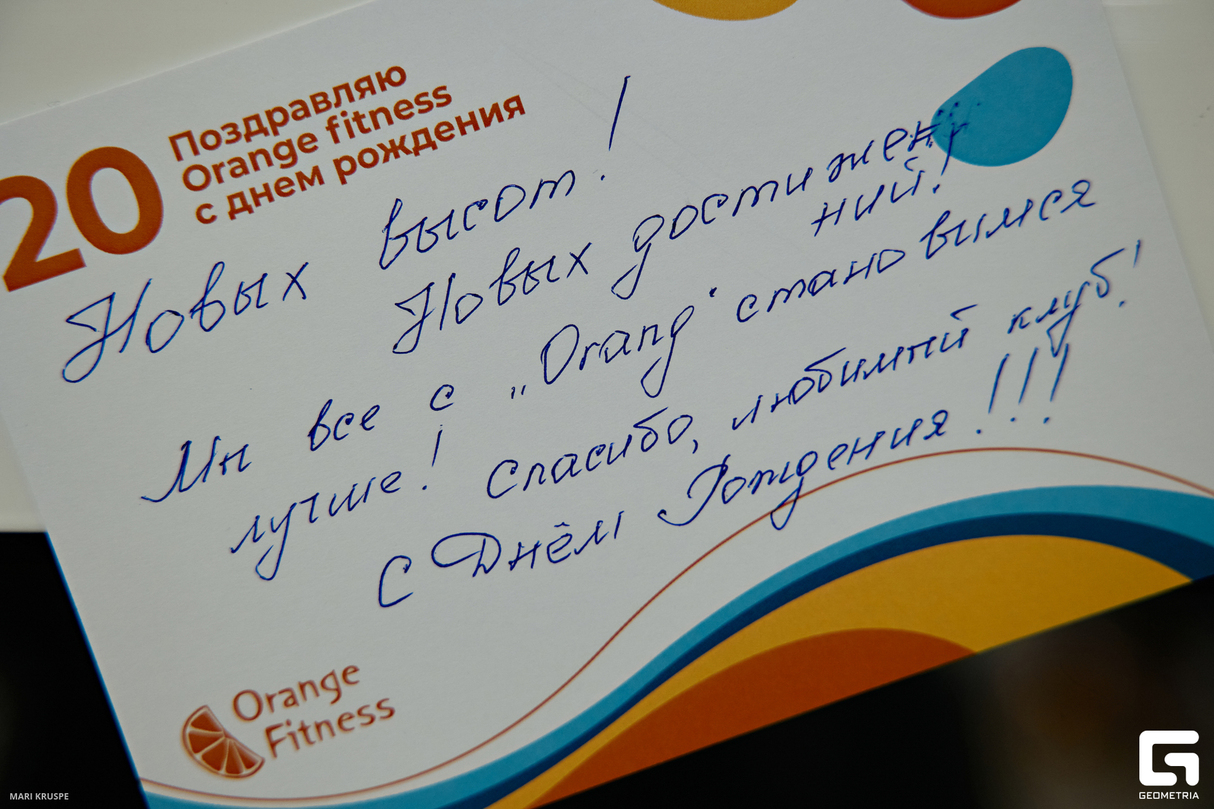 20
Поздравляю
Orange fitness
с днем рождения
Новых высот!
Новых достижен
ний!
Мы все с „Orang“ становимся
лучше! Спасибо, любимый клуб!
С Днём Рождения!!!
Orange
Fitness
MARI KRUSPE
GEOMETRIA